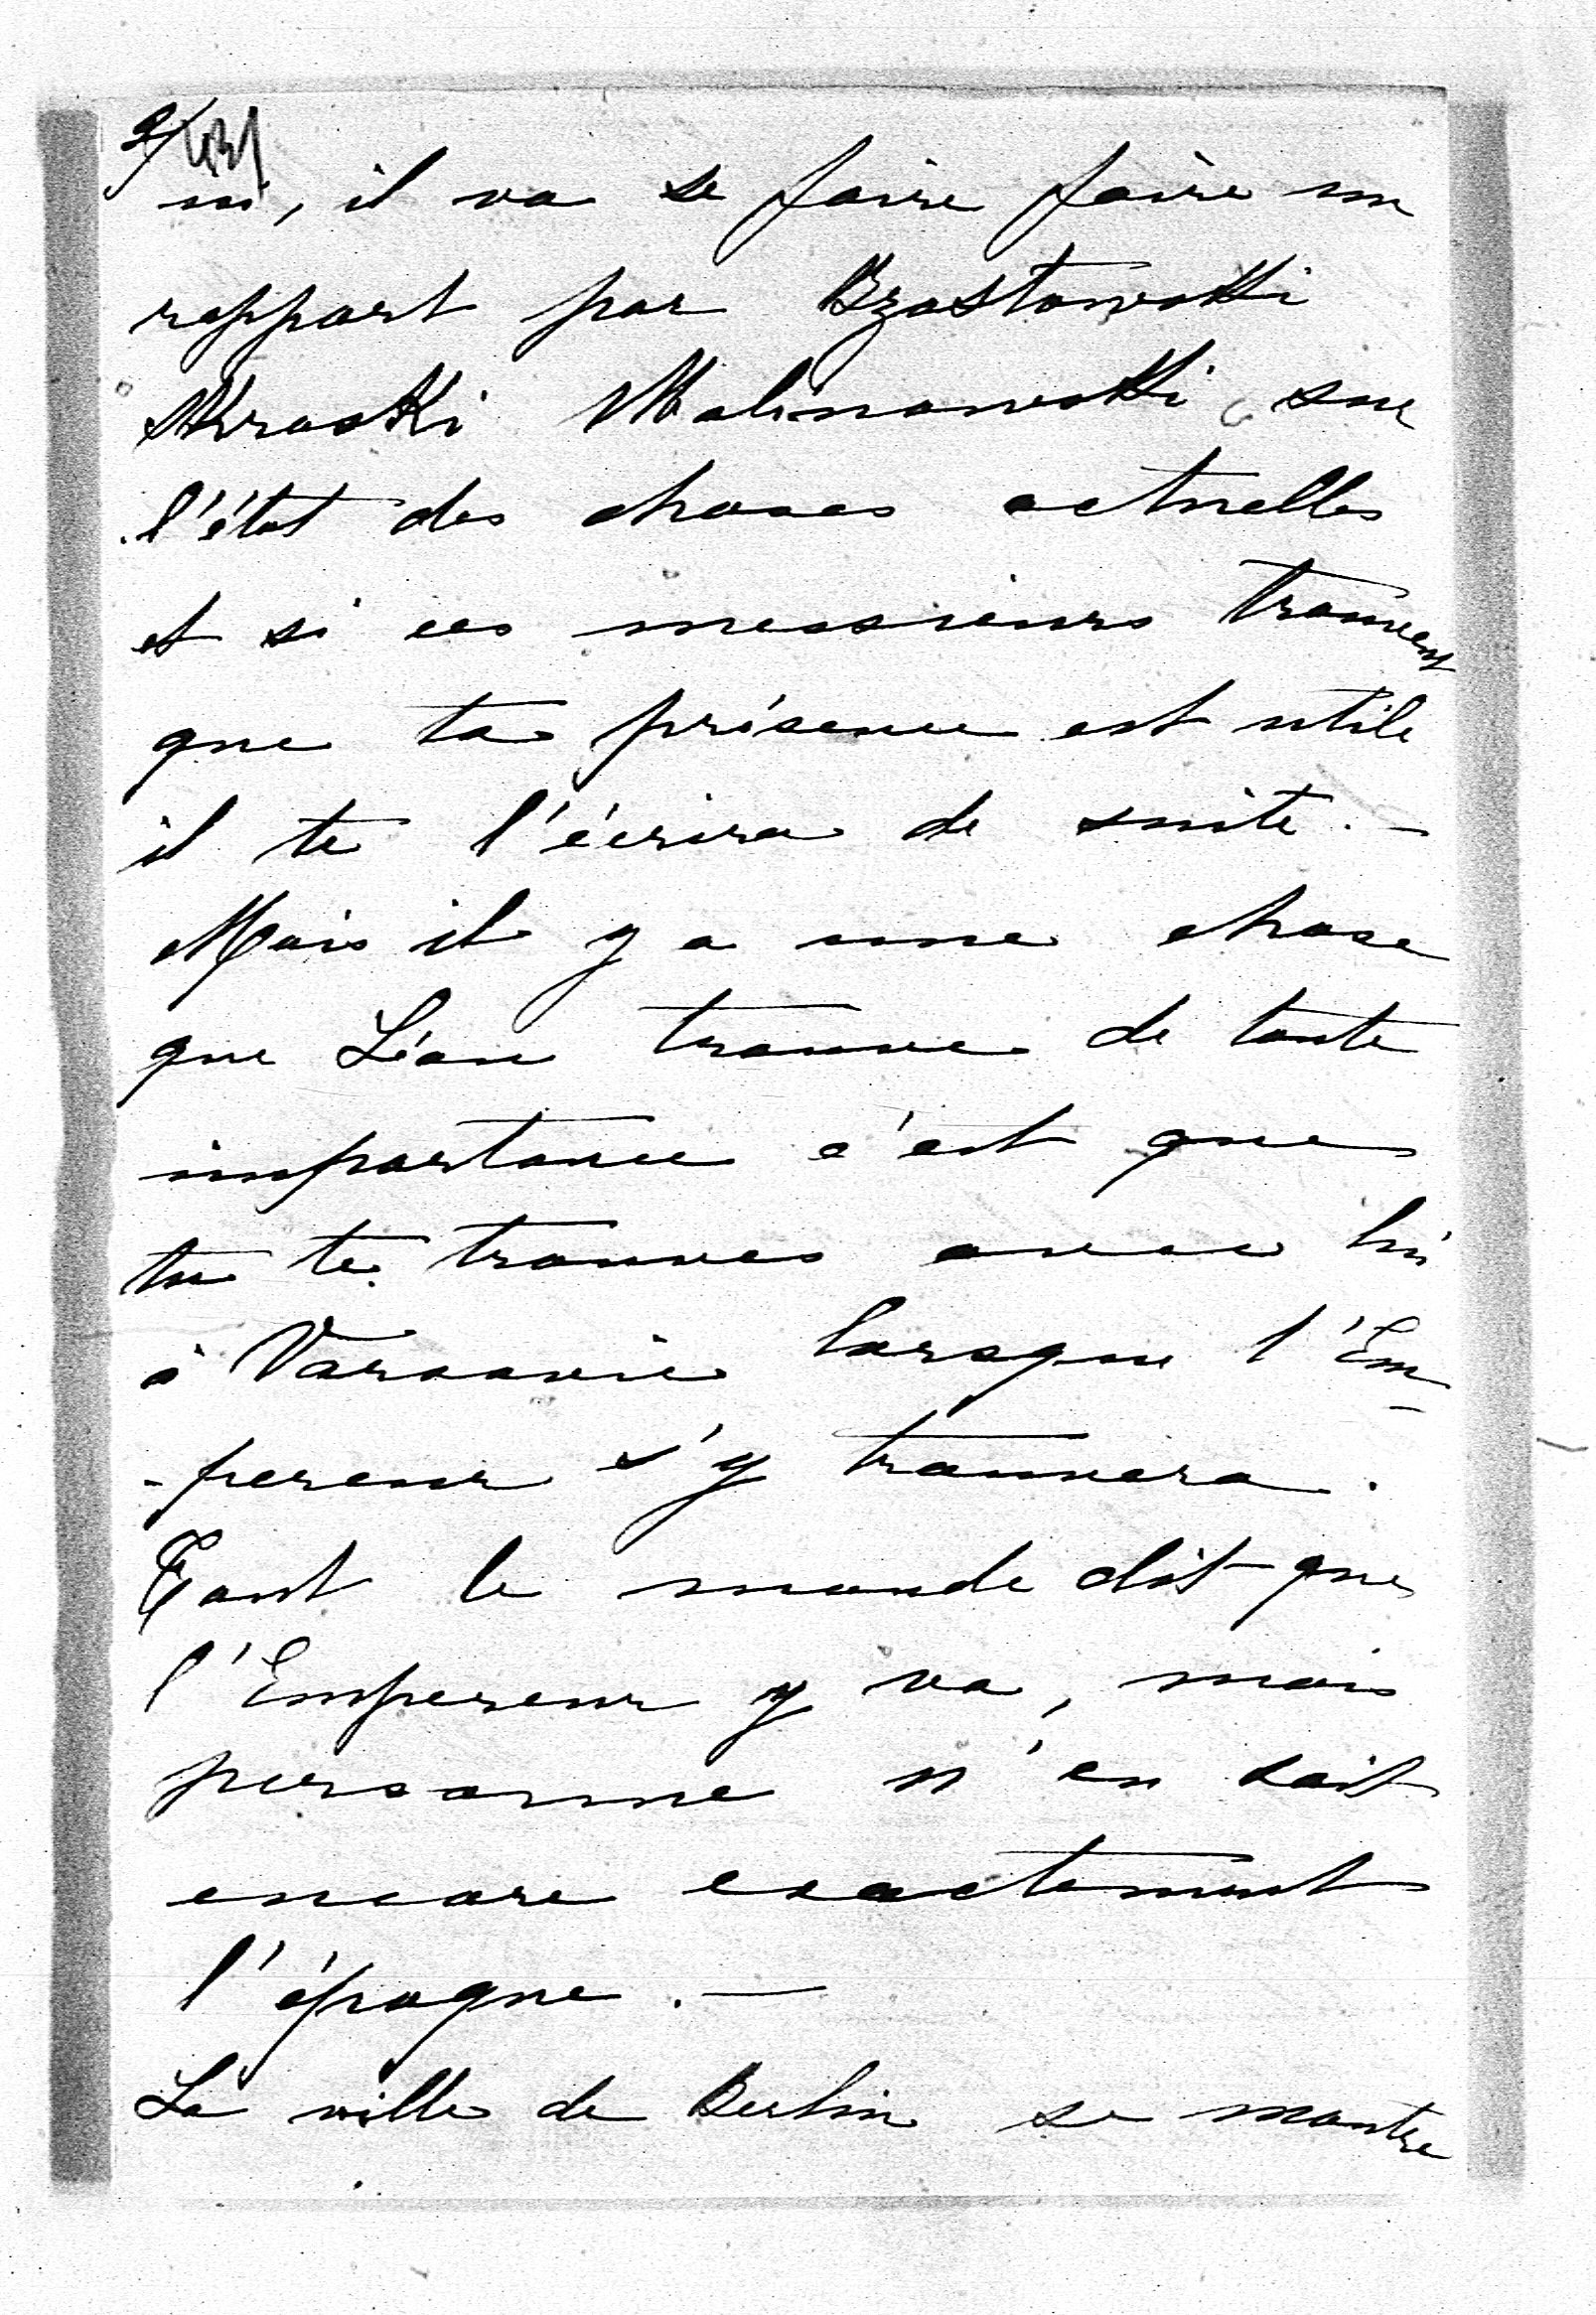 2/ 431
ni, il va se faire faire un
rapport par Brzostowski
Skiraski Malinowski sur
l'état des choses actuelles
et si ces messieurs trouvent
que ta présence est utile
il te l'écrira de suite. —
Mais il y a une chose
que Léon trouve de toute
importance c'est que
tu te trouves avec lui
à Varsovie lorsque l'Em-
-pereur s'y trouvera.
Tout le monde dit que
l'Empereur y va, mais
personne n'en sait
encore exactement
l'époque. —
La ville de Berlin se montre